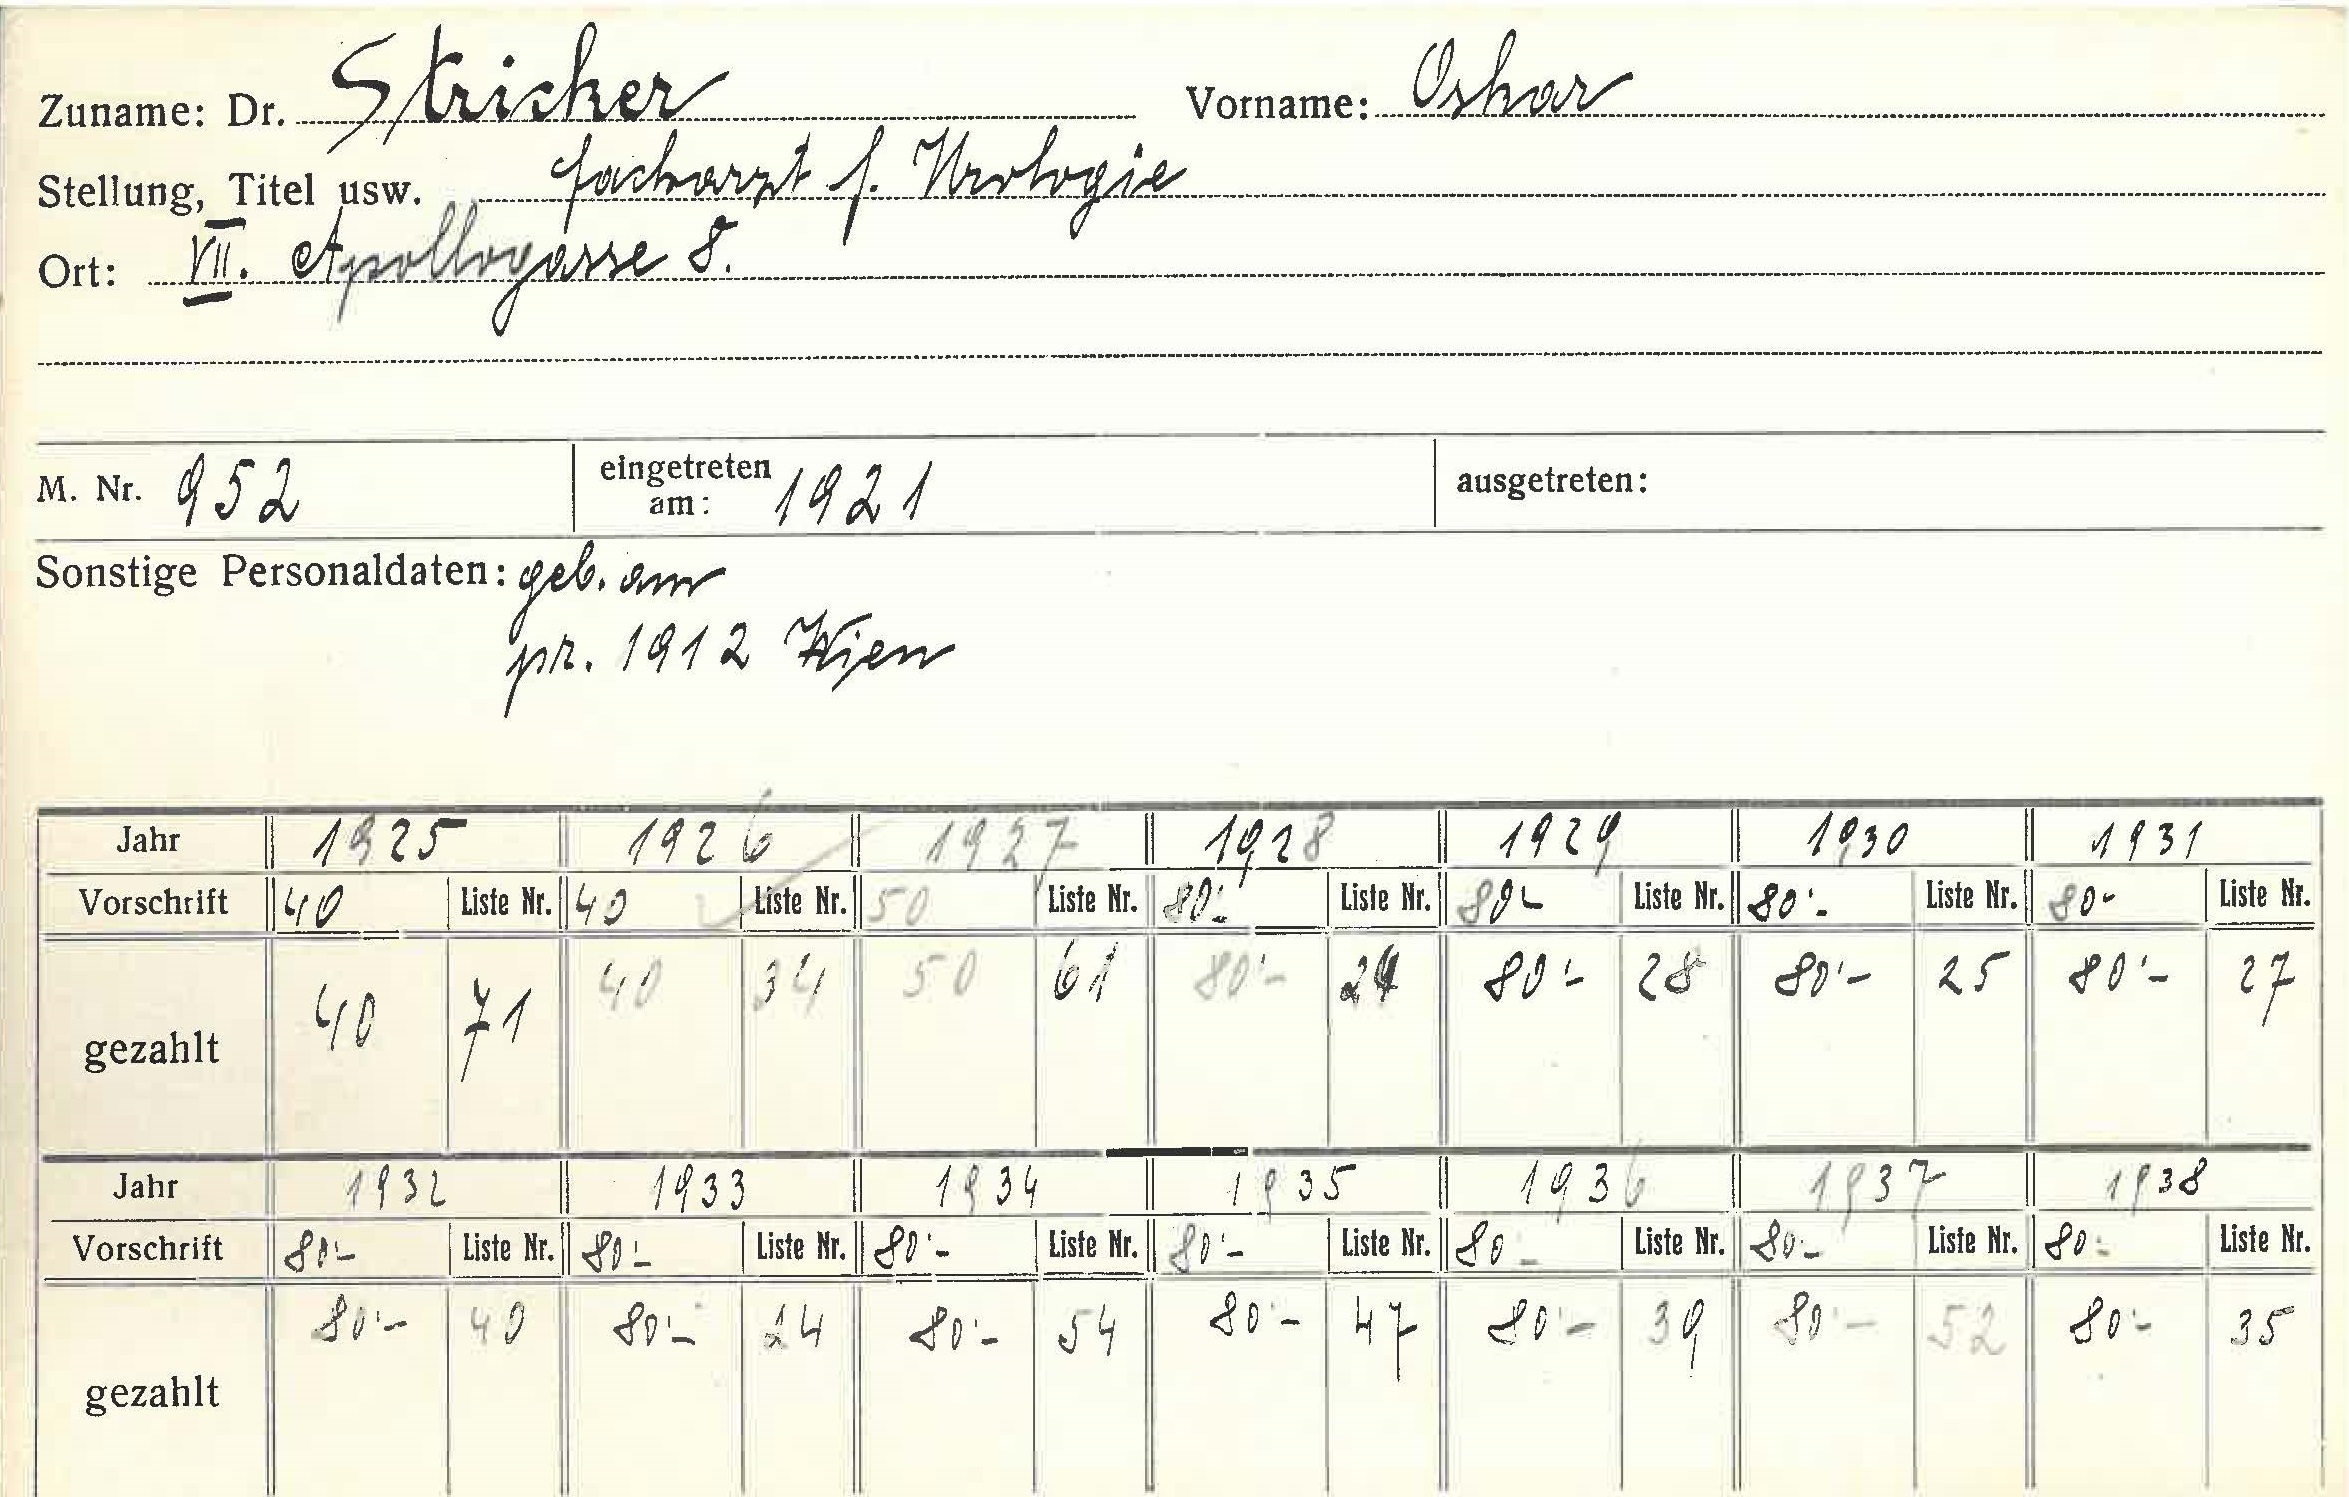 Zuname: Dr. Stricker Vorname: Oskar
Stellung, Titel usw. Facharzt f. Urologie
Ort: VII. Apollogasse 8.
M. Nr. 952 eingetreten am: 1921 ausgetreten:
Sonstige Personaldaten: geb. am
pr. 1912 Wien
Jahr 1925 1926 1927 1928 1929 1930 1931
Vorschrift 40 Liste Nr. 40 Liste Nr. 50 Liste Nr. 80.- Liste Nr. 80- Liste Nr. 80.- Liste Nr. 80- Liste Nr.
gezahlt 40 71 40 34 50 61 80.- 80.- 28 80.- 25 80.- 27
Jahr 1932 1933 1934 1935 1936 1937 1938
Vorschrift 80.- Liste Nr. 80.- Liste Nr. 80.- Liste Nr. 80.- Liste Nr. 80.- Liste Nr. 80.- Liste Nr. 80.- Liste Nr.
gezahlt 80.- 40 80.- 24 80.- 54 80.- 47 80.- 39 80.- 52 80.- 35